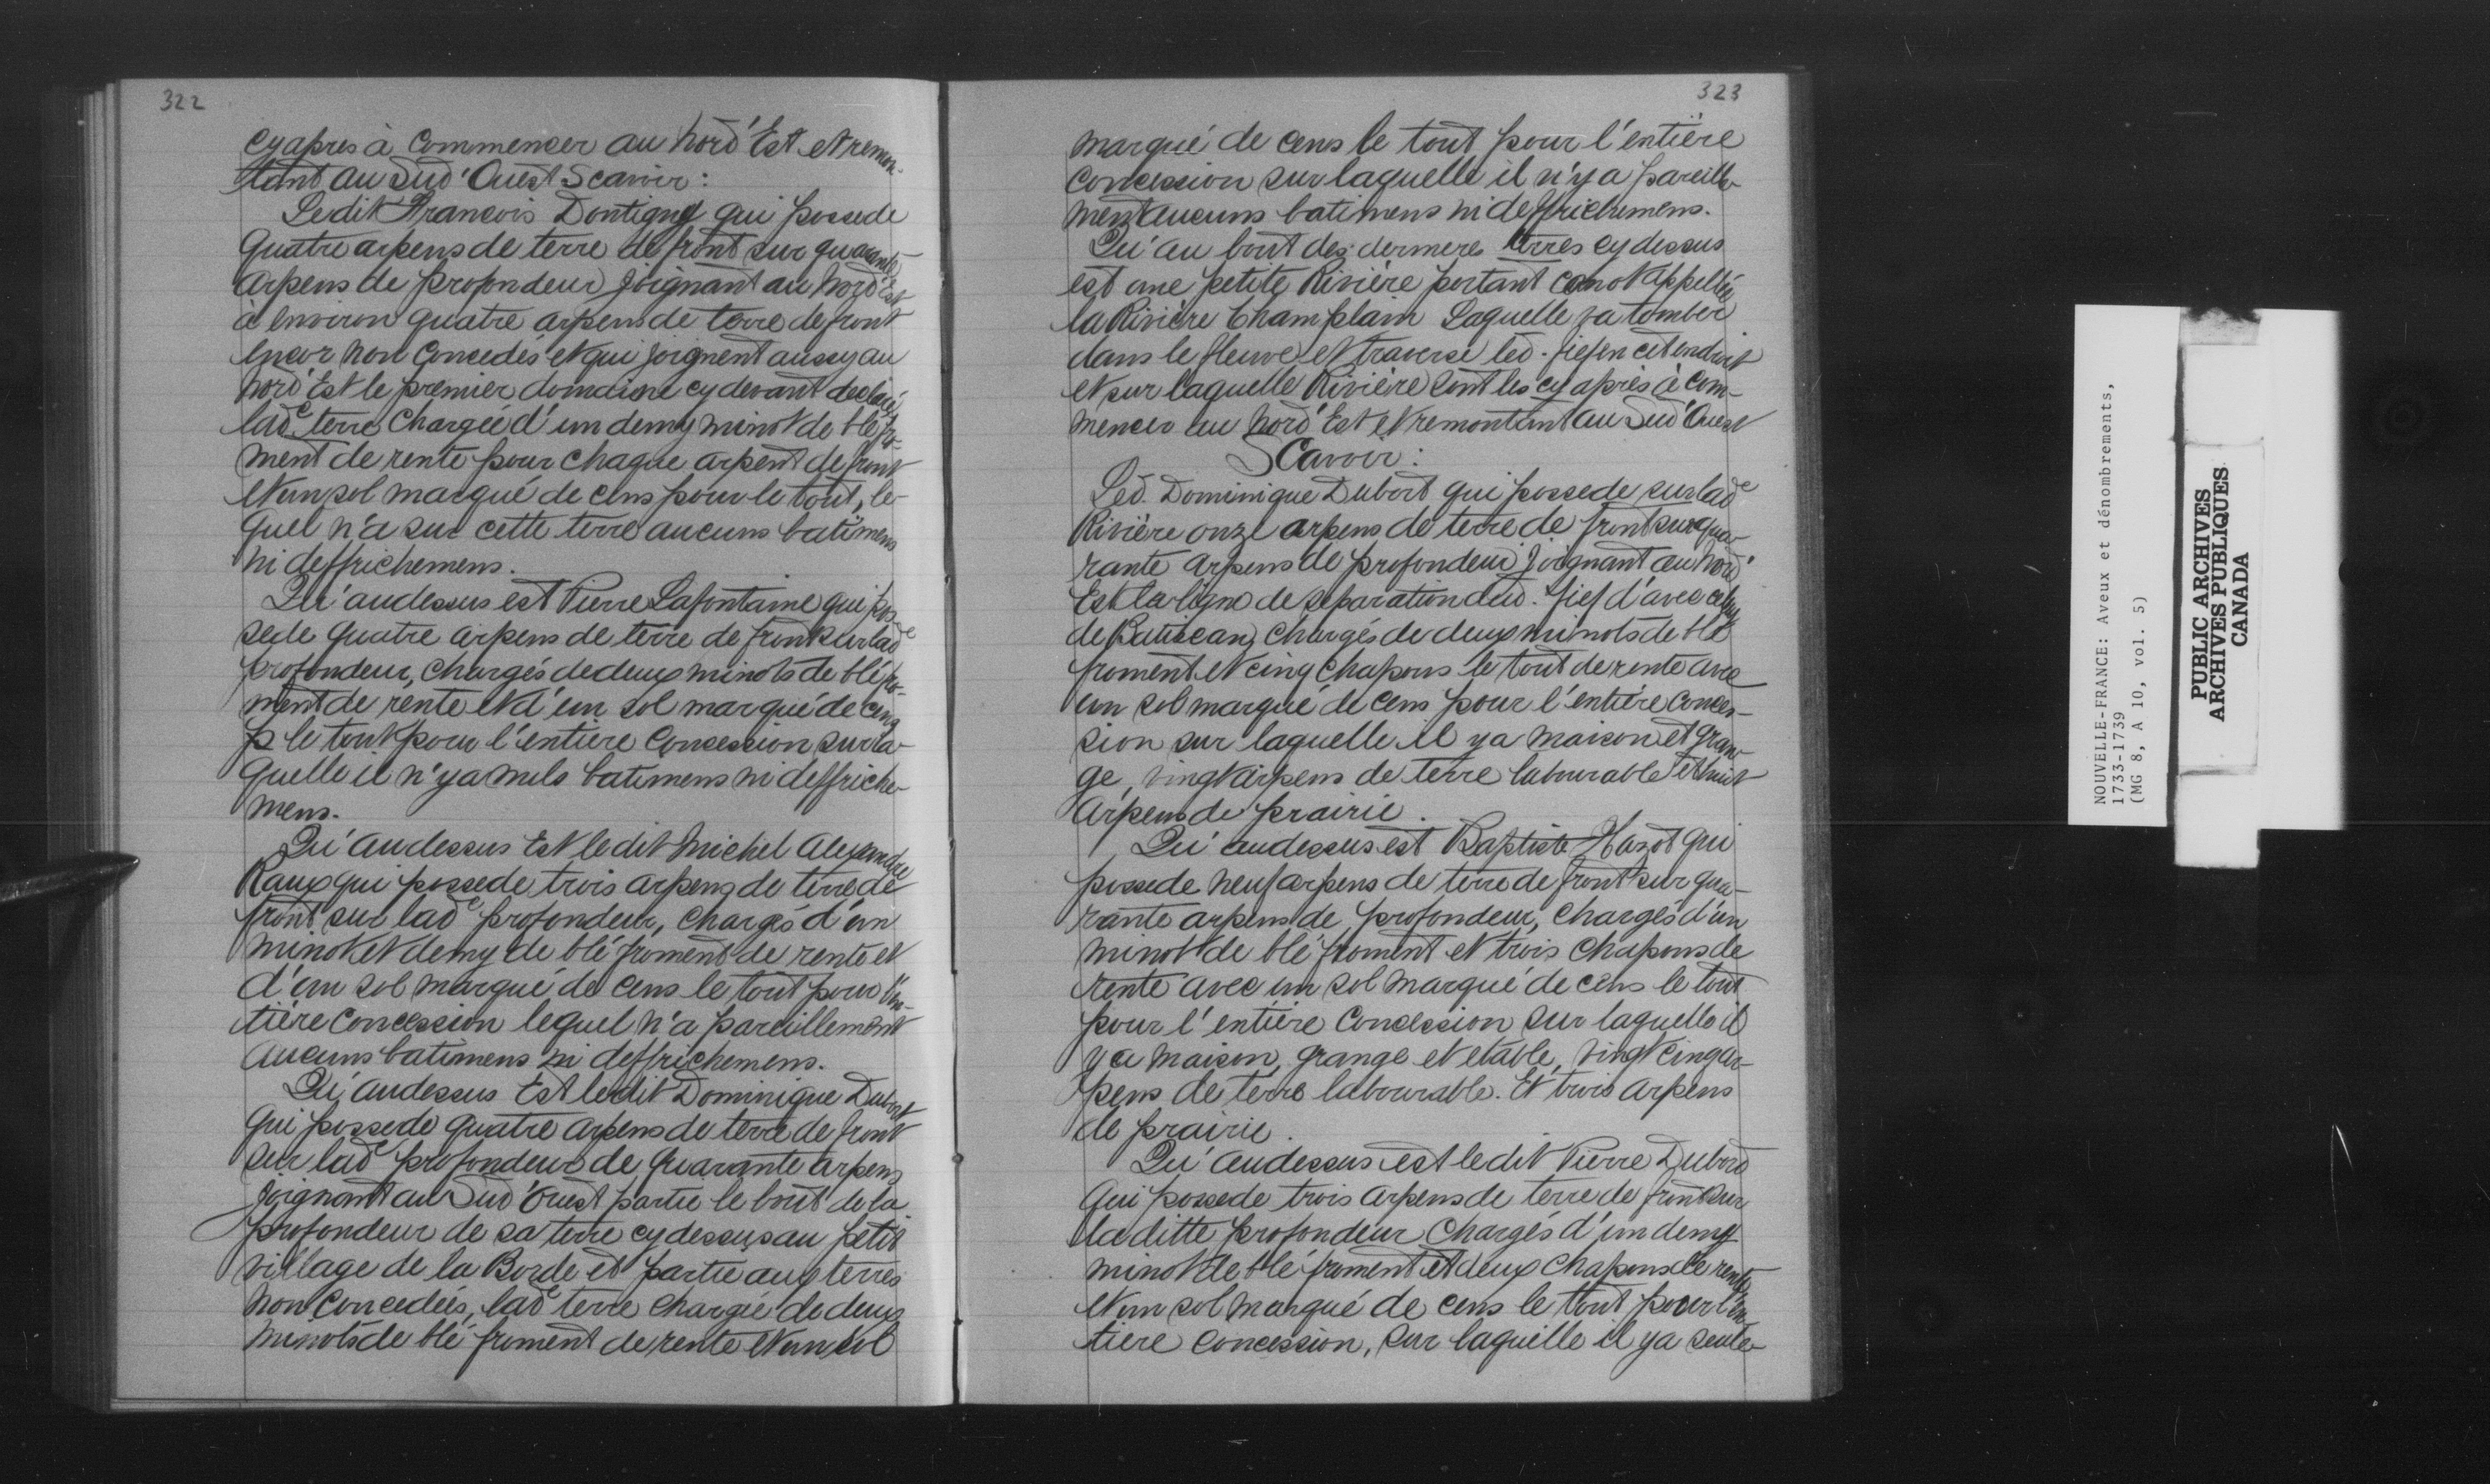 322
cy apres à Commencer au Nord'Est et remon-
tant au Sud'Ouest Scavoir:
Ledit Francois Dontigny qui possede
quatre arpens de terre de front sur quarante
arpens de profondeur joignant au Nord'Est
à environ quatre arpens de terre de front
encor non Concedés et qui joignent aussy au
Nord'Est le premier domaine cy devant declaré
lade terre Chargée d'un demy minot de blé fro-
ment de rente pour chaque arpent de front
et un sol marqué de cens pour le tout, le-
quel n'a sur cette terre aucuns batimens
ni deffrichemens.
Qu'audessus est Pierre Lafontaine qui pos-
sede quatre arpens de terre de front sur lade
profondeur, chargés de deux minots de blé fro-
ment de rente et d'un sol marqué de cens
p le tout pour l'entiere Concession sur la-
quelle il n'y a nuls batimens ni deffriche-
mens.
Qu'audessus Est ledit Michel Alexandre
Raux qui possede trois arpens de terre de
front sur lade profondeur, chargés d'un
minot et demy de blé froment de rente et
d'un sol marqué de cens le tout pour l'en-
tière Concession lequel n'a pareillement
aucuns batimens ni deffrichemens.
Qu'audessus Est ledit Dominique Dubort
qui possede quatre arpens de terre de front
sur lade profondeur de quarante arpens
joignant au Sud'Ouest partie le bout de la
profondeur de sa terre cy dessus au petit
village de la Borde et partie aux terres
non Concedées, lade terre chargée de deux
minots de blé froment de rente et un sol
323
marqué de cens le tout pour l'entière
concession sur laquelle il n'y a pareille-
ment aucuns batimens ni deffrichemens.
Qu'au bout des dernieres terres cy dessus
est une petite Rivière portant canot appellée
la Rivière Champlain Laquelle va tomber
dans le fleuve et traverse led. fief en cet endroit
et sur laquelle Rivière sont les cy après à Com-
mencer au Nord'Est et remontant au Sud'Ouest
Scavoir:
Led. Dominique Dubort qui possede sur lade
Rivière onze arpens de terre de front sur qua-
rante arpens de profondeur joignant au Nord'
Est la ligne de separation dud. fief d'avec celuy
de Batiscan, chargés de deux minots de blé
froment et cinq chapons le tout de rente avec
un sol marqué de cens pour l'entière conces-
sion sur laquelle il y a maison et gran-
ge, vingt arpens de terre labourable et huit
arpens de prairie.
Qu'audessus est Baptiste Hazot qui
possede neuf arpens de terre de front sur qua-
rante arpens de profondeur, chargés d'un
minot de blé froment et trois chapons de
rente avec un sol marqué de cens le tout
pour l'entière Concession sur laquelle il
y a maison, grange et etable, vingt cinq ar-
pens de terre labourable. Et trois arpens
de prairie.
Qu'audessus est ledit Pierre Dubord
qui possede trois arpens de terre de front sur
la ditte profondeur Chargés d'un demy
minot de blé froment et deux chapons de rente
et un sol marqué de cens le tout pour l'en-
tiere concession, sur laquelle il y a seule-
NOUVELLE-FRANCE: Aveux et dénombrements,
1733-1739
(MG 8, A 10, vol. 5)
PUBLIC ARCHIVES
ARCHIVES PUBLIQUES
CANADA